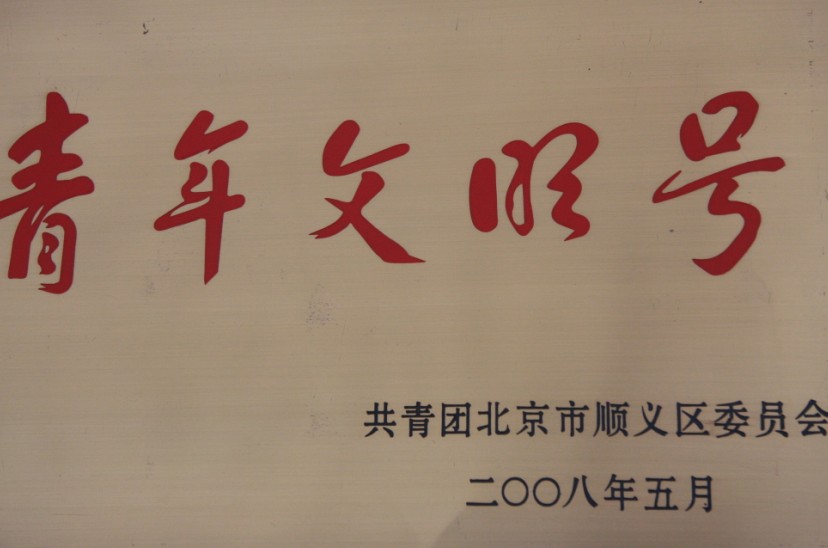 青年文明号
共青团北京市顺义区委员会
二〇〇八年五月